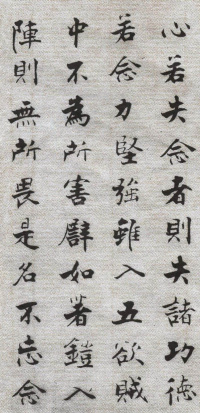 心若失念者則失諸功德
若念力堅強雖入五欲賊
中不為所害譬如著鎧入
陣則無所畏是名不忘念